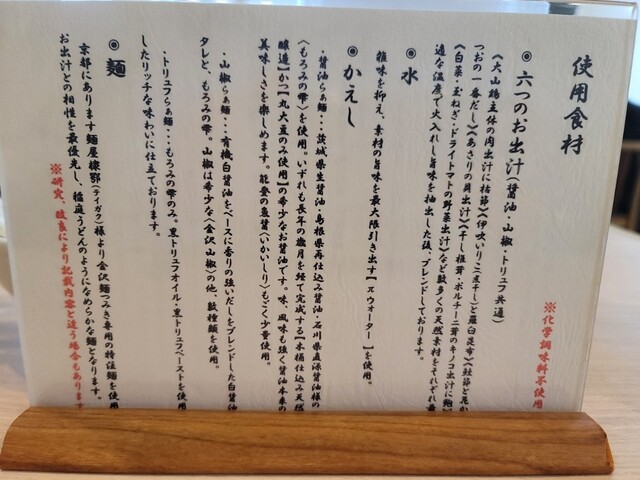 使用食材
※化学調味料不使用
◉六つのお出汁(醤油・山椒・トリュフ共通)
《大山鶏主体の肉出汁に枯節》《伊吹いりこ煮干しと羅臼昆布》《鮭節と
つおの一番だし》《あさりの貝出汁》《干し椎茸・ポルチーニ茸のキノコ出汁に
《白菜・玉ねぎ・ドライトマトの野菜出汁》など数多くの天然素材をそれぞれ最
適な温度で火入れし旨味を抽出した後、ブレンドしております。
◉水
雑味を抑え、素材の旨味を最大限引き出す【πウォーター】を使用。
◉かえし
・醤油らぁ麺・・・茨城県生醤油・島根県再仕込み醤油・石川県直源醤油様の
〈もろみの雫〉を使用。いずれも長年の歳月を経て完成する【木桶仕込み天然
醸造】かつ【丸大豆のみ使用】の希少なお醤油です。味、風味も強く醤油本来の
美味しさを楽しめます。能登の魚醤(いかいしり)もごく少量使用。
・山椒らぁ麺・・・有機白醤油をベースに香りの強いだしをブレンドした白醤油
タレと、もろみの雫。山椒は希少な〈金沢山椒〉の他、数種類を使用。
・トリュフらぁ麺・・・もろみの雫のみ。黒トリュフオイル・黒トリュフペーストを使用
したリッチな味わいに仕立ております。
◉麺
京都にあります麺屋棣鄂(テイガク)様より金沢麺つみき専用の特注麺を使用
お出汁との相性を最優先し、稲庭うどんのようになめらかな麺となります。
※研究、改良により記載内容と違う場合もあります